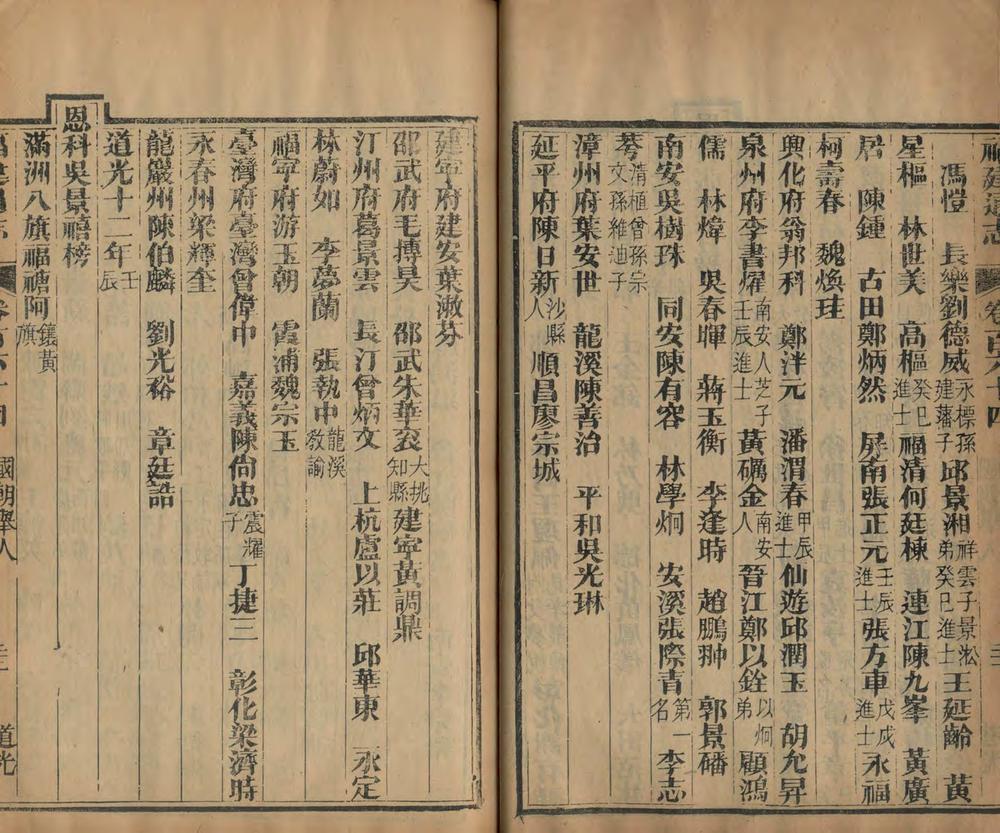 福建通志 卷百六十四
馮愷 長樂劉德威永標孫建藩子邱景湘祥雲子景淞弟癸巳進士王延齡 黃
星樞 林世美 高樞癸巳進士福清何廷棟 連江陳九峯 黃廣
居 陳鍾 古田鄭炳然 屏南張正元壬辰進士張方車戊戌進士永福
柯壽春 魏煥珪
興化府翁邦科 鄭泮元 潘渭春甲辰進士仙遊邱潤玉 胡允昇
泉州府李書燿南安人芝子壬辰進士黃礪金南安人晉江鄭以銓以炯弟顧鴻
儒 林煒 吳春暉 蔣玉衡 李逢時 趙鵬翀 郭景磻
南安吳樹珠 同安陳有容 林學炯 安溪張際青第一名李志
蕚清植曾孫宗文孫維迪子
漳州府葉安世 龍溪陳善治 平和吳光琳
延平府陳日新沙縣人順昌廖宗城
建寧府建安葉漱芬
邵武府毛搏昊 邵武朱華衮大挑知縣建寧黃調鼎
汀州府葛景雲 長汀曾炳文 上杭盧以莊 邱華東 永定
林蔚如 李夢蘭 張執中龍溪教諭
福寧府游玉朝 霞浦魏宗玉
臺灣府臺灣曾偉中 嘉義陳尙忠震耀子丁捷三 彰化梁濟時
永春州梁輝奎
龍巖州陳伯麟 劉光裕 章廷誥
道光十二年壬辰
恩科吳景禧榜
滿洲八旗福禟阿鑲黃旗
福建通志 卷百六十四 國朝舉人 道光